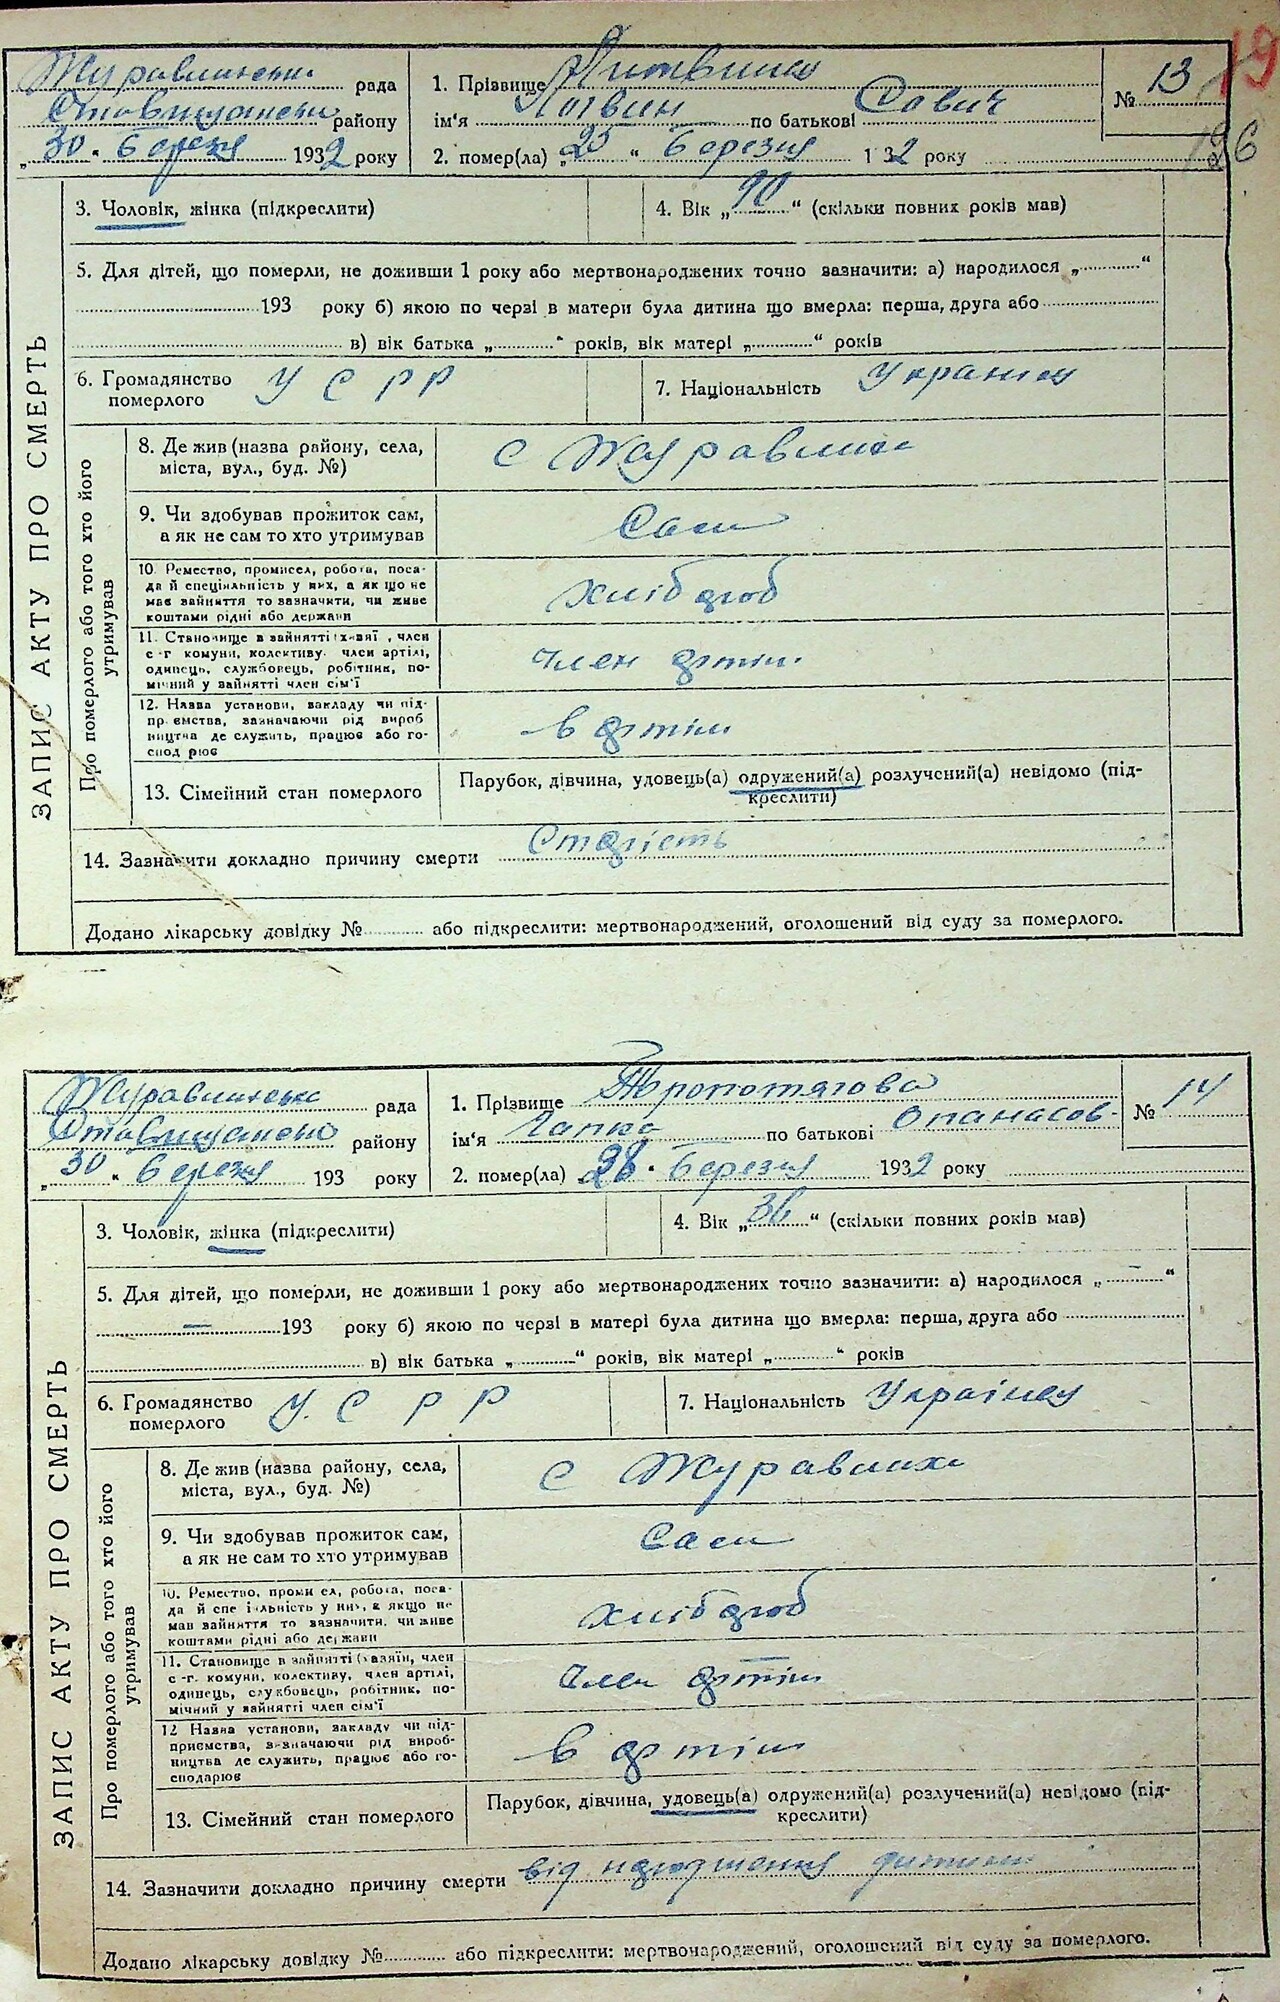 19
126
Журавлинська рада
Ставищанськ району
„ 30 “ березня 1932 року
1. Прізвище Литвинко
ім'я Логвин по батькові Савич
2. помер(ла) „25 “ березня 1 32 року
№ 13
ЗАПИС АКТУ ПРО СМЕРТЬ
3. Чоловік, жінка (підкреслити)
4. Вік „ 90 “ (скільки повних років мав)
5. Для дітей, що померли, не доживши 1 року або мертвонароджених точно зазначити: а) народилося „ “
193 року б) якою по черзі в матери була дитина що вмерла: перша, друга або
в) вік батька „ “ років, вік матері „ “ років
6. Громадянство померлого У С Р Р
7. Національність Українец
Про померлого або того хто його утримував
8. Де жив (назва району, села,
міста, вул., буд. №)
с Журавлиха
9. Чи здобував прожиток сам,
а як не сам то хто утримував
Сам
10. Ремество, промисел, робота, поса-
да й спеціяльність у них, а як що не
має зайняття то зазначити, чи живе
коштами рідні або держави
хлібороб
11. Становище в зайнятті (хазяї , член
с -г комуни, колективу. член артілі,
одинець, службовець, робітник, по-
мічний у зайнятті член сім'ї
член артіли
12. Назва установи, закладу чи під-
пр ємства, зазначаючи рід вироб
ництва де служить, працює або го-
спод рює
в артіли
13. Сімейний стан померлого
Парубок, дівчина, удовець(а) одружений(а) розлучений(а) невідомо (під-
креслити)
14. Зазначити докладно причину смерти Старість
Додано лікарську довідку № або підкреслити: мертвонароджений, оголошений від суду за померлого.
Журавлинська рада
Ставищанськ району
„ 30 “ березня 193 року
1. Прізвище
ім'я Гапка по батькові Опанасов-
2. помер(ла) 28 “ березня 1932 року
№ 14
ЗАПИС АКТУ ПРО СМЕРТЬ
3. Чоловік, жінка (підкреслити)
4. Вік „ 36 “ (скільки повних років мав)
5. Для дітей, що померли, не доживши 1 року або мертвонароджених точно зазначити: а) народилося „ — “
— 193 року б) якою по черзі в матері була дитина що вмерла: перша, друга або
в) вік батька „ “ років, вік матері „ “ років
6. Громадянство померлого У. С Р Р
7. Національність Українец
Про померлого або того хто його утримував
8. Де жив (назва району, села,
міста, вул., буд. №)
с Журавлиха
9. Чи здобував прожиток сам,
а як не сам то хто утримував
Сам
10. Ремество, проми ел, робота, поса-
да й спе і льність у них, а якщо не
мав зайняття то зазначити, чи живе
коштами рідні або держави
хлібороб
11. Становище в зайнятті (хазяїн, член
с -г. комуни, колективу, член артілі,
одинець, службовець, робітник, по-
мічний у зайнятті член сім'ї
член артіли
12 Назва установи, закладу чи під-
приємства, зазначаючи рід вироб-
ництва де служить, працює або го-
сподарює
в артіли
13. Сімейний стан померлого
Парубок, дівчина, удовець(а) одружений(а) розлучений(а) невідомо (під-
креслити)
14. Зазначити докладно причину смерти від народження дитини
Додано лікарську довідку № або підкреслити: мертвонароджений, оголошений від суду за померлого.